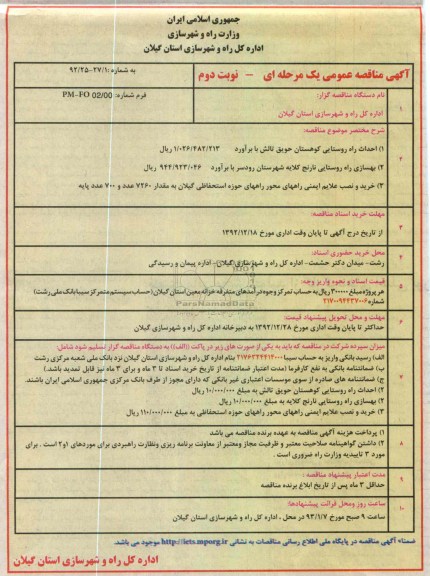 جمهوری اسلامی ایران
وزارت راه و شهرسازی
اداره کل راه و شهرسازی استان گیلان
آگهی مناقصه عمومی یک مرحله ای - نوبت دوم
به شماره: ۹۲/۲۵-۲۷/۱۰
فرم شماره: PM-FO 02/00
۱
نام دستگاه مناقصه گزار:
اداره کل راه و شهرسازی استان گیلان
۲
شرح مختصر موضوع مناقصه:
۱) احداث راه روستایی کوهستان حویق تالش با برآورد ۱/۰۲۶/۴۸۲/۲۱۳ ریال
۲) بهسازی راه روستایی نارنج کلایه شهرستان رودسر با برآورد ۹۴۴/۹۲۳/۰۴۶ ریال
۳) خرید و نصب علایم ایمنی راههای محور راههای حوزه استحفاظی گیلان به مقدار ۷۲۶۰ عدد و ۷۰۰ عدد پایه
۳
مهلت خرید اسناد مناقصه:
از تاریخ درج آگهی تا پایان وقت اداری مورخ ۱۳۹۲/۱۲/۱۸
۴
محل خرید حضوری اسناد:
رشت- میدان دکتر حشمت- اداره کل راه و شهرسازی گیلان- اداره پیمان و رسیدگی
۵
قیمت اسناد و نحوه واریز وجه:
هر پروژه مبلغ ۳۰۰۰۰۰ ریال به حساب تمرکز وجوه درآمدهای متفرقه خزانه معین استان گیلان (حساب سیستم متمرکز سیبا بانک ملی رشت)
شماره ۲۱۷۰۰۹۴۴۳۷۰۰۶
ParsNamadData
۶
مهلت و محل تحویل پیشنهاد قیمت:
حداکثر تا پایان وقت اداری مورخ ۱۳۹۲/۱۲/۲۸ به دبیرخانه اداره کل راه و شهرسازی گیلان
۷
میزان سپرده شرکت در مناقصه که باید به یکی از صورت های زیر در پاکت (الف) به دستگاه مناقصه گزار تسلیم شود شامل:
الف) رسید بانکی واریز به حساب سیبا ۲۱۷۶۳۴۴۲۱۴۰۰۰ بنام اداره کل راه و شهرسازی استان گیلان نزد بانک ملی شعبه مرکزی رشت
ب) ضمانتنامه بانکی به نفع کارفرما (مدت اعتبار ضمانتنامه از تاریخ خرید اسناد تا ۳ ماه و برای ۳ ماه نیز قابل تمدید باشد.)
ج) ضمانتنامه های صادره از سوی موسسات اعتباری غیر بانکی که دارای مجوز از طرف بانک مرکزی جمهوری اسلامی ایران باشند.
۱) احداث راه روستایی کوهستان حویق تالش به مبلغ ۱۰/۰۰۰/۰۰۰ ریال
۲) بهسازی راه روستایی نارنج کلایه به مبلغ ۱۰/۰۰۰/۰۰۰ ریال
۳) خرید و نصب علایم ایمنی راههای محور راههای حوزه استحفاظی به مبلغ ۱۱۰/۰۰۰/۰۰۰ ریال
۸
۱) پرداخت هزینه آگهی مناقصه به عهده برنده مناقصه می باشد
۲) داشتن گواهینامه صلاحیت معتبر و ظرفیت مجاز ومعتبر از معاونت برنامه ریزی ونظارت راهبردی برای موردهای ۱و۲ است . برای
مورد ۳ تاییدیه وزارت راه ضروری است .
۹
مدت اعتبار پیشنهاد مناقصه :
حداقل ۳ ماه پس از تاریخ ابلاغ برنده مناقصه
۱۰
ساعت روز ومحل قرائت پیشنهادها:
ساعت ۹ صبح مورخ ۹۳/۱/۷ در محل ، اداره کل راه و شهرسازی استان گیلان
ضمناً آگهی مناقصه در پایگاه ملی اطلاع رسانی مناقصات به نشانی http://iets.mporg.ir موجود می باشد.
اداره کل راه و شهرسازی استان گیلان